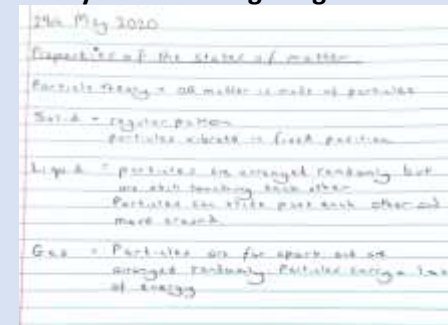 24th May 2020
Properties of the states of matter
Particle theory = all matter is made of particles
Solid = regular pattern
particles vibrate in fixed position
Liquid = particles are arranged randomly but
are still touching each other
Particles can slide past each other and
move around.
Gas = Particles are far apart and are
arranged randomly. Particles carry a lot
of energy